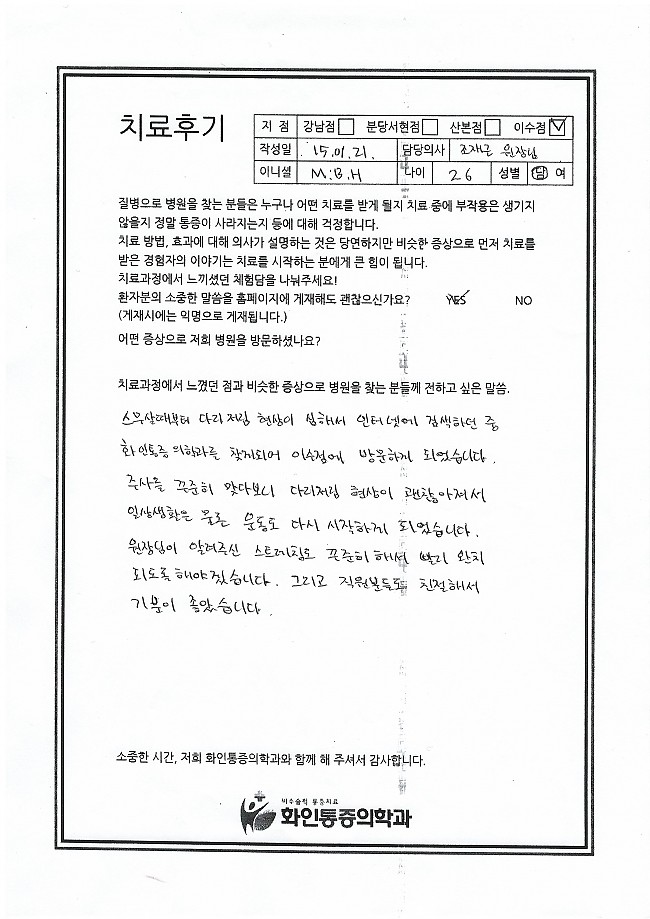 치료후기
지 점 강남점 분당서현점 산본점 이수점
작성일 15.01.21. 담당의사 조재근 원장님
이니셜 M.B.H 나이 26 성별 남 여
질병으로 병원을 찾는 분들은 누구나 어떤 치료를 받게 될지 치료 중에 부작용은 생기지
않을지 정말 통증이 사라지는지 등에 대해 걱정합니다.
치료 방법, 효과에 대해 의사가 설명하는 것은 당연하지만 비슷한 증상으로 먼저 치료를
받은 경험자의 이야기는 치료를 시작하는 분에게 큰 힘이 됩니다.
치료과정에서 느끼셨던 체험담을 나눠주세요!
환자분의 소중한 말씀을 홈페이지에 게재해도 괜찮으신가요? YES NO
(게재시에는 익명으로 게재됩니다.)
어떤 증상으로 저희 병원을 방문하셨나요?
치료과정에서 느꼈던 점과 비슷한 증상으로 병원을 찾는 분들께 전하고 싶은 말씀.
스무살때부터 다리저림 현상이 심해서 인터넷에 검색하던 중
화인통증의학과를 찾게되어 이수점에 방문하게 되었습니다.
주사를 꾸준히 맞다보니 다리저림 현상이 괜찮아져서
일상생활은 물론 운동도 다시 시작하게 되었습니다.
원장님이 알려주신 스트레칭도 꾸준히 해서 빨리 완치
되도록 해야겠습니다. 그리고 직원분들도 친절해서
기분이 좋았습니다.
소중한 시간, 저희 화인통증의학과와 함께 해 주셔서 감사합니다.
비수술적 통증치료
화인통증의학과